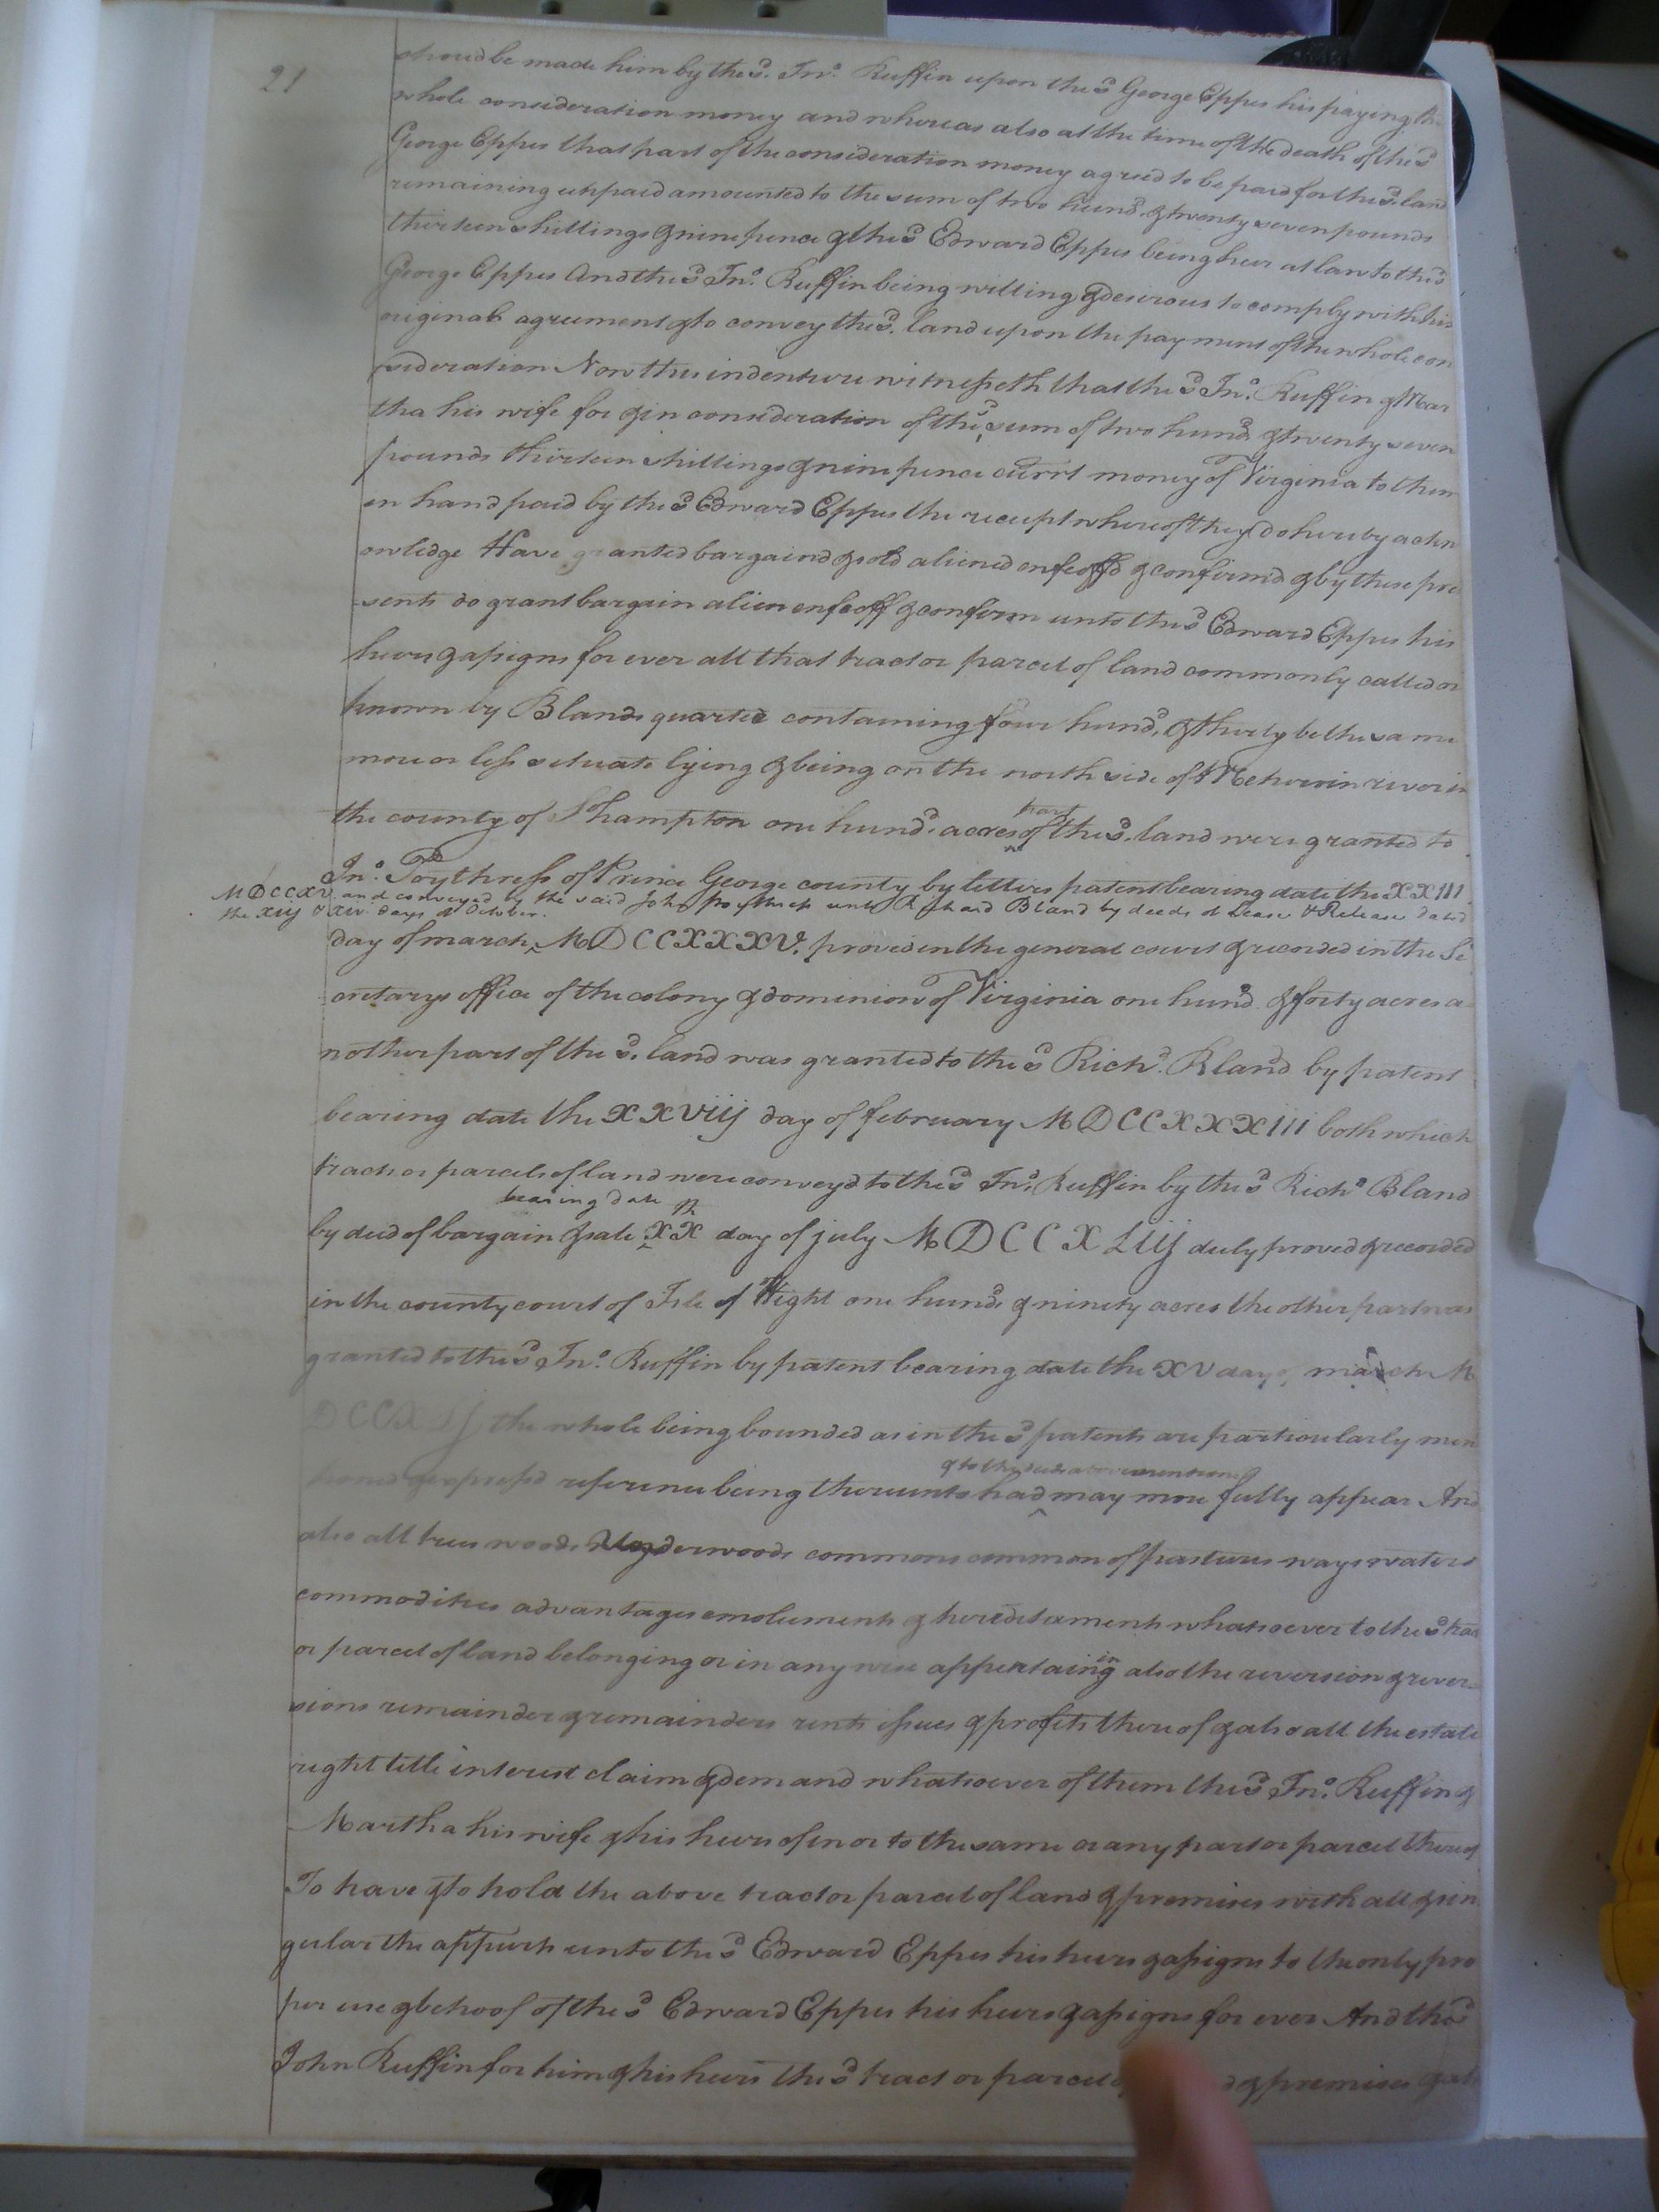 21
shoud be made him by the sd. Jno. Ruffin upon the sd George Eppes his paying the
whole consideration money and whereas also at the time of the death of the sd
George Eppes that part of the consideration money agreed to be paid for the sd. land
remaining unpaid amounted to the sum of two hund. & twenty seven pounds
thirteen shillings & nine pence & the sd Edward Eppes being heir at law to the sd
George Eppes And the sd Jno. Ruffin being willing & desirous to comply with his
original agreement & to convey the sd. land upon the payment of the whole con
sideration Now this indenture witnesseth that the sd Jno. Ruffin & Mar
tha his wife for & in consideration of the sd sum of two hund & twenty seven
pounds thirteen shillings & nine pence currt money of Virginia to them
in hand paid by the sd Edward Eppes the receipt whereof they do hereby ackn
owledge Have granted bargaind & sold aliened enfeoffd & confirmd & by these pre
sents do grant bargain alien enfeoff & confirm unto the sd Edward Eppes his
heirs & assigns for ever all that tract or parcel of land commonly called or
known by Blands quarter containing four hund. & thirty be the same
more or less situate lying & being on the north side of Meherrin river in
the county of Shampton one hund. acres part of the sd. land were granted to
Jno. Poythress of Prince George county by letters patent bearing date the XXIII
MDCCXV and conveyed by the said John Poythress unto Richard Bland by deeds of Lease & Release dated
the xiij & xiv days of October.
day of march MDCCXXXV. proved in the general court & recorded in the Se
cretarys office of the colony & dominion of Virginia one hund. & forty acres a
nother part of the sd. land was granted to the sd Richd. Bland by patent
bearing date the XXViij day of february MDCCXXXIII both which
tracts or parcels of land were conveyd to the sd Jno. Ruffin by the sd Richd Bland
by deed of bargain & sale bearing date the XX day of july MDCCXLiij duly proved & recorded
in the county court of Isle of Wight one hund & ninety acres the other part was
granted to the sd Jno. Ruffin by patent bearing date the XV day of march M
DCCX the whole being bounded as in the sd patents are particularly men
tioned & expressd reference being thereunto had & to the deeds above mentioned may more fully appear And
also all trees woods Underwoods commons common of pastures ways waters
commodities advantages emoluments & hereditaments whatsoever to the sd tract
or parcel of land belonging or in any wise appertaining also the reversion & rever
sions remainder & remainders rents issues & profits thereof & also all the estate
right title interest claim & demand whatsoever of them the sd Jno. Ruffin &
Martha his wife & his heirs of in or to the same or any part or parcel thereof
To have & to hold the above tract or parcel of land & premises with all & sin
gular the appurts unto the sd Edward Eppes his heirs & assigns to the only pro
per use & behoof of the sd Edward Eppes his heirs & assigns for ever And the sd
John Ruffin for him & his heirs the sd tract or parcel & premises